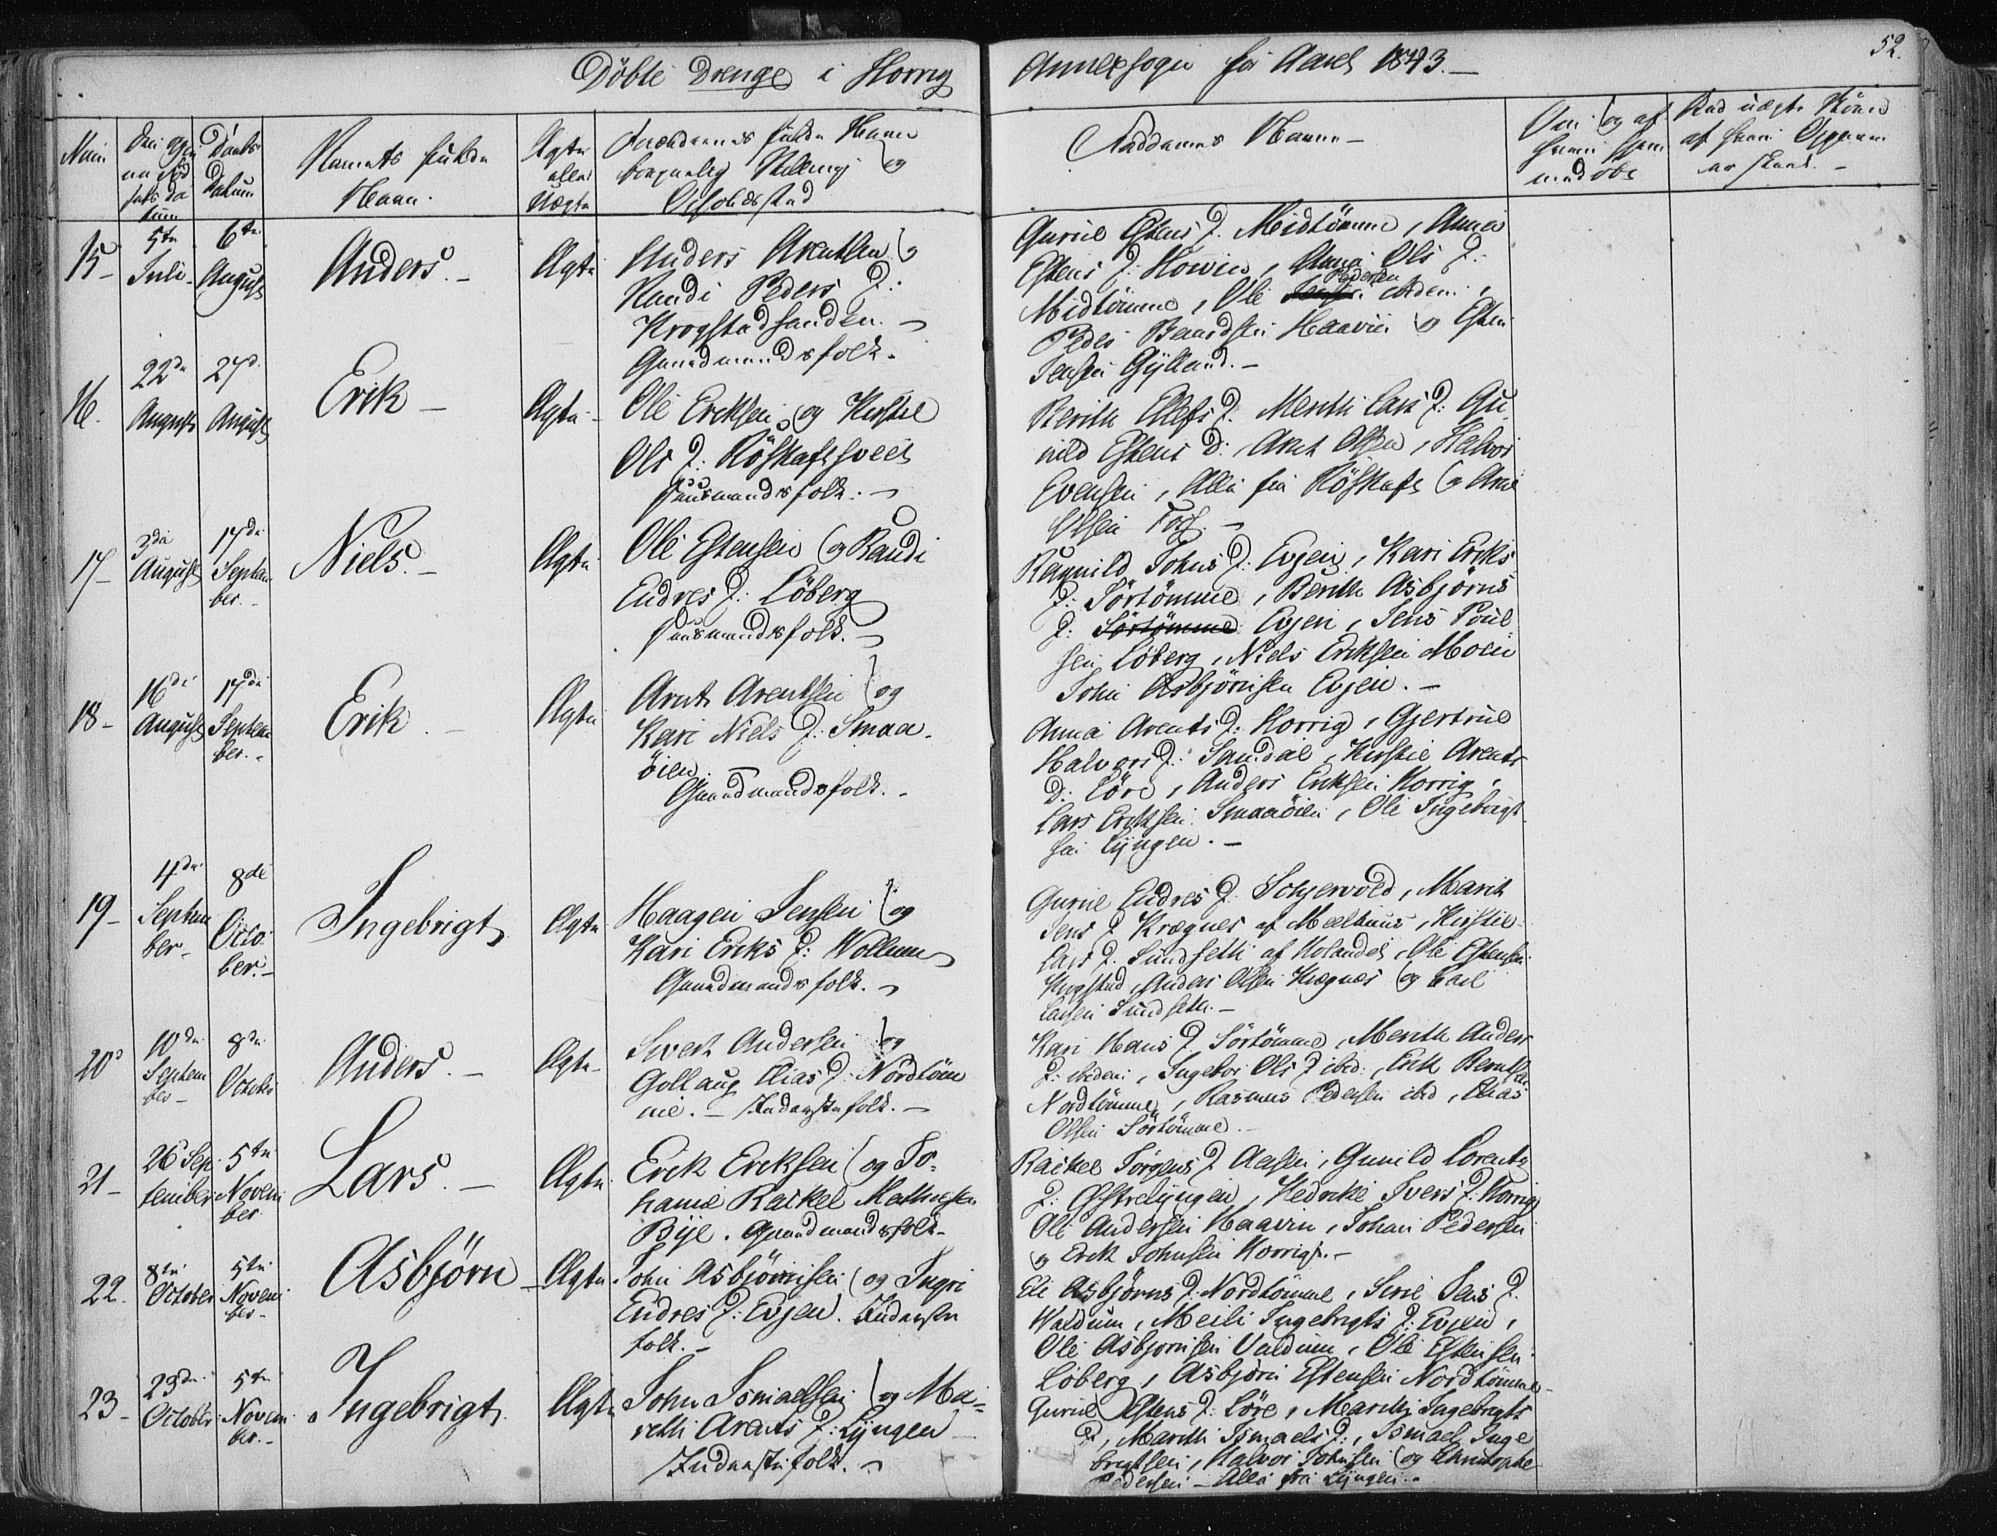 52.
Döbte Drenge i Horrig Annexsogn for Aaret 1843. —
Num
Daabs Datum
Barnets fulde Navn.
Ægte eller Uægte
Forældrenes fulde Navn borgerlig Stilling og Opholdssted
Faddernes Navne —
15
5te Juli
6te August
Anders. —
Ægte
Anders Arentsen og
Randi Peders D:
Krogstadsanden. —
Gaardmandsfolk.
Gurue Estens D. Midtömme, Anna
Estens D: Howin, Anna Ols D:
Midtömme, Ole Pedersen ibidem,
Peder Baardsen Haavin og Esten
Jensen Gylland. —
16.
22de August
27de August
Erik —
Ægte
Ole Eriksen og Kirstie
Ols D: Röskaftsveet
Huusmandsfolk. —
Berith Ellefs D. Merith Lars D: Gu
nild Estens D: Arnt Olsen, Halvor
Evensen, Alle fra Röskaft og Arne
Olsen Foss. —
17—
3die August
17de September.
Niels. —
Ægte
Ole Estensen og Randi
Endres D: Löberg
Huusmandsfolk. —
Ragnild Johns D: Evjen, Kari Eriks
D: Sörtömme, Berith Asbjörns
D: Sörtömme Evjen, Jens Poul
sen Löberg, Niels Eriksen Moen
John Asbjörnsen Evjen. —
18—
16de August
17de September. —
Erik. —
Ægte
Arnt Arentsen og
Kari Niels D: Smaa-
öien
Gaardmandsfolk. —
Anna Arents D: Horrig, Gjertrue
Halvors D: Sandal, Kirstie Arents
D: Löre, Anders Eriksen Horrig,
Lars Eriksen Smaaöien, Ole Ingebrigt
sen Lyngen. —
19—
4de September —
8de October. —
Ingebrigt
Ægte
Haagen Jensen og
Kari Eriks D: Wollum
Gaardmandsfolk. —
Gurue Endres D. Schjervold, Marit
Jens D Krægnes af Meelhuus, Kirstie
Lars D. Sundsetli af Holandet, Ole Estensen
Krogstad, Anders Olsen Krægnes og Carl
Larsen Sundseth. —
20
10de September —
8de October
Anders. —
Ægte
Sivert Andersen og
Gollaug Elias D. Nordtöm
me. — Inderstefolk. —
Kari Hans D Sörtömme, Merith Anders
D: ibidem, Ingebor Ols D ibid:, Erik Berntsen
Nordtömme, Rasmus Pedersen ibid, Elias
Olsen Sörtömme. —
21—
26 September
5te November
Lars. —
Ægte
Erik Eriksen og Jo-
hanne Rackel Mathiesen
Bye. Gaardmandsfolk.
Rackel Jörgens D Aasen, Gunild Lorents
D: Østrelyngen, Hedvike Ivers D: Horrig
Ole Andersen Haavin, Johan Pedersen
og Erik Johnsen Horrig. —
22.
8de October
5te November —
Asbjørn —
Ægte
John Asbjörnsen og Ingri
Endres D: Evjen. Inderste
folk. —
Eli Asbjørns D: Nordtömme, Sirie Jens D.
Waldum, Meili Ingebrigts D: Evjen,
Ole Asbjornsen Valdum, Ole Estensen
Löberg, Asbjörn Estensen Nordtömme —
23—
23de October
5te November. —
Ingebrigt
Ægte
John Ismaelsen og Ma-
rethi Arents D: Lyngen
Inderstefolk. —
Gurue Estens D: Löre, Marith Ingebrigts
D:, Marithi Ismaels D:, Ismael Inge
brigtsen, Halvor Johnsen og Christophe
Pedersen — Alle fra Lyngen. —